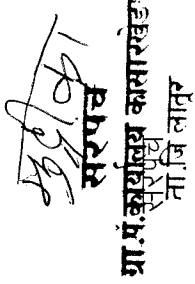 सरपंच
ग्रा.पं.कार्यालय कासारखेडा
सरपंच
ता.जि लातूर